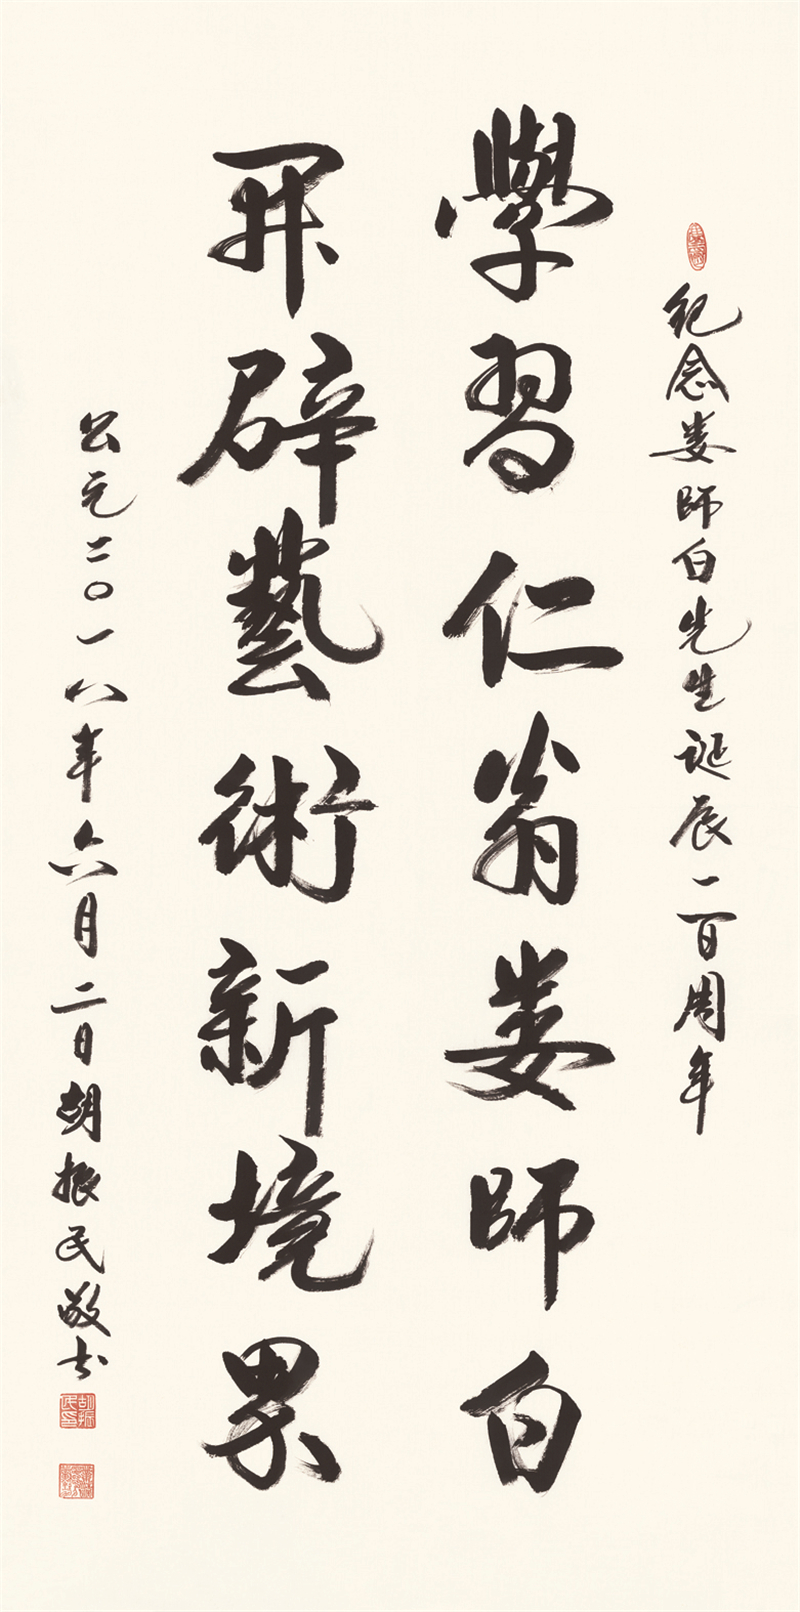 纪念娄師白先生诞辰一百周年
學習仁翁娄師白
开辟藝術新境界
公元二〇一八年六月二日胡振民敬书
胡振民印